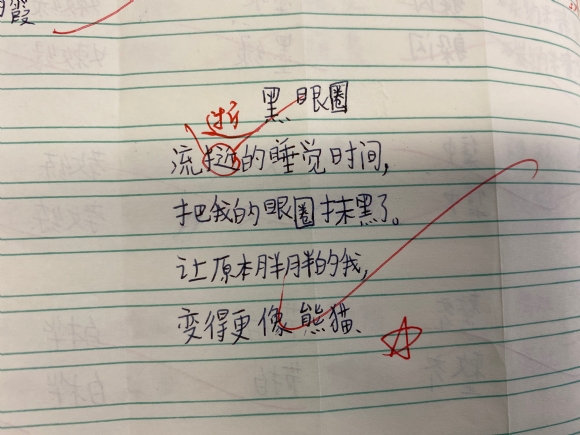 霞
黑眼圈
逝
流的睡觉时间,
把我的眼圈抹黑了。
让原本胖胖的我,
变得更像熊猫、